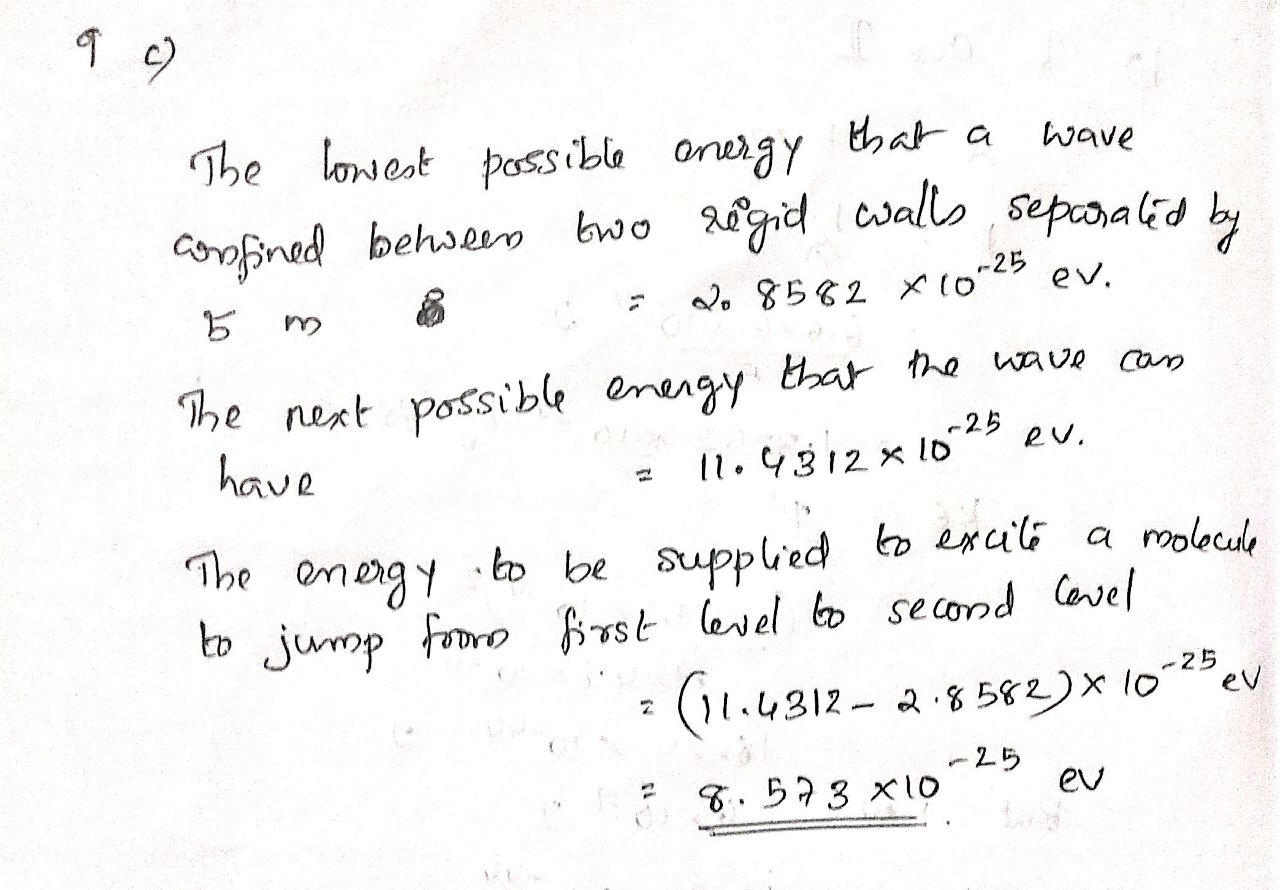 9 c)
The lowest possible energy that a wave
confined between two rigid walls separated by
5 m = 2.8582 × 10⁻²⁵ ev.
The next possible energy that the wave can
have = 11.4312 × 10⁻²⁵ ev.
The energy to be supplied to excite a molecule
to jump from first level to second level
= (11.4312 - 2.8582) × 10⁻²⁵ ev
= 8.573 × 10⁻²⁵ ev